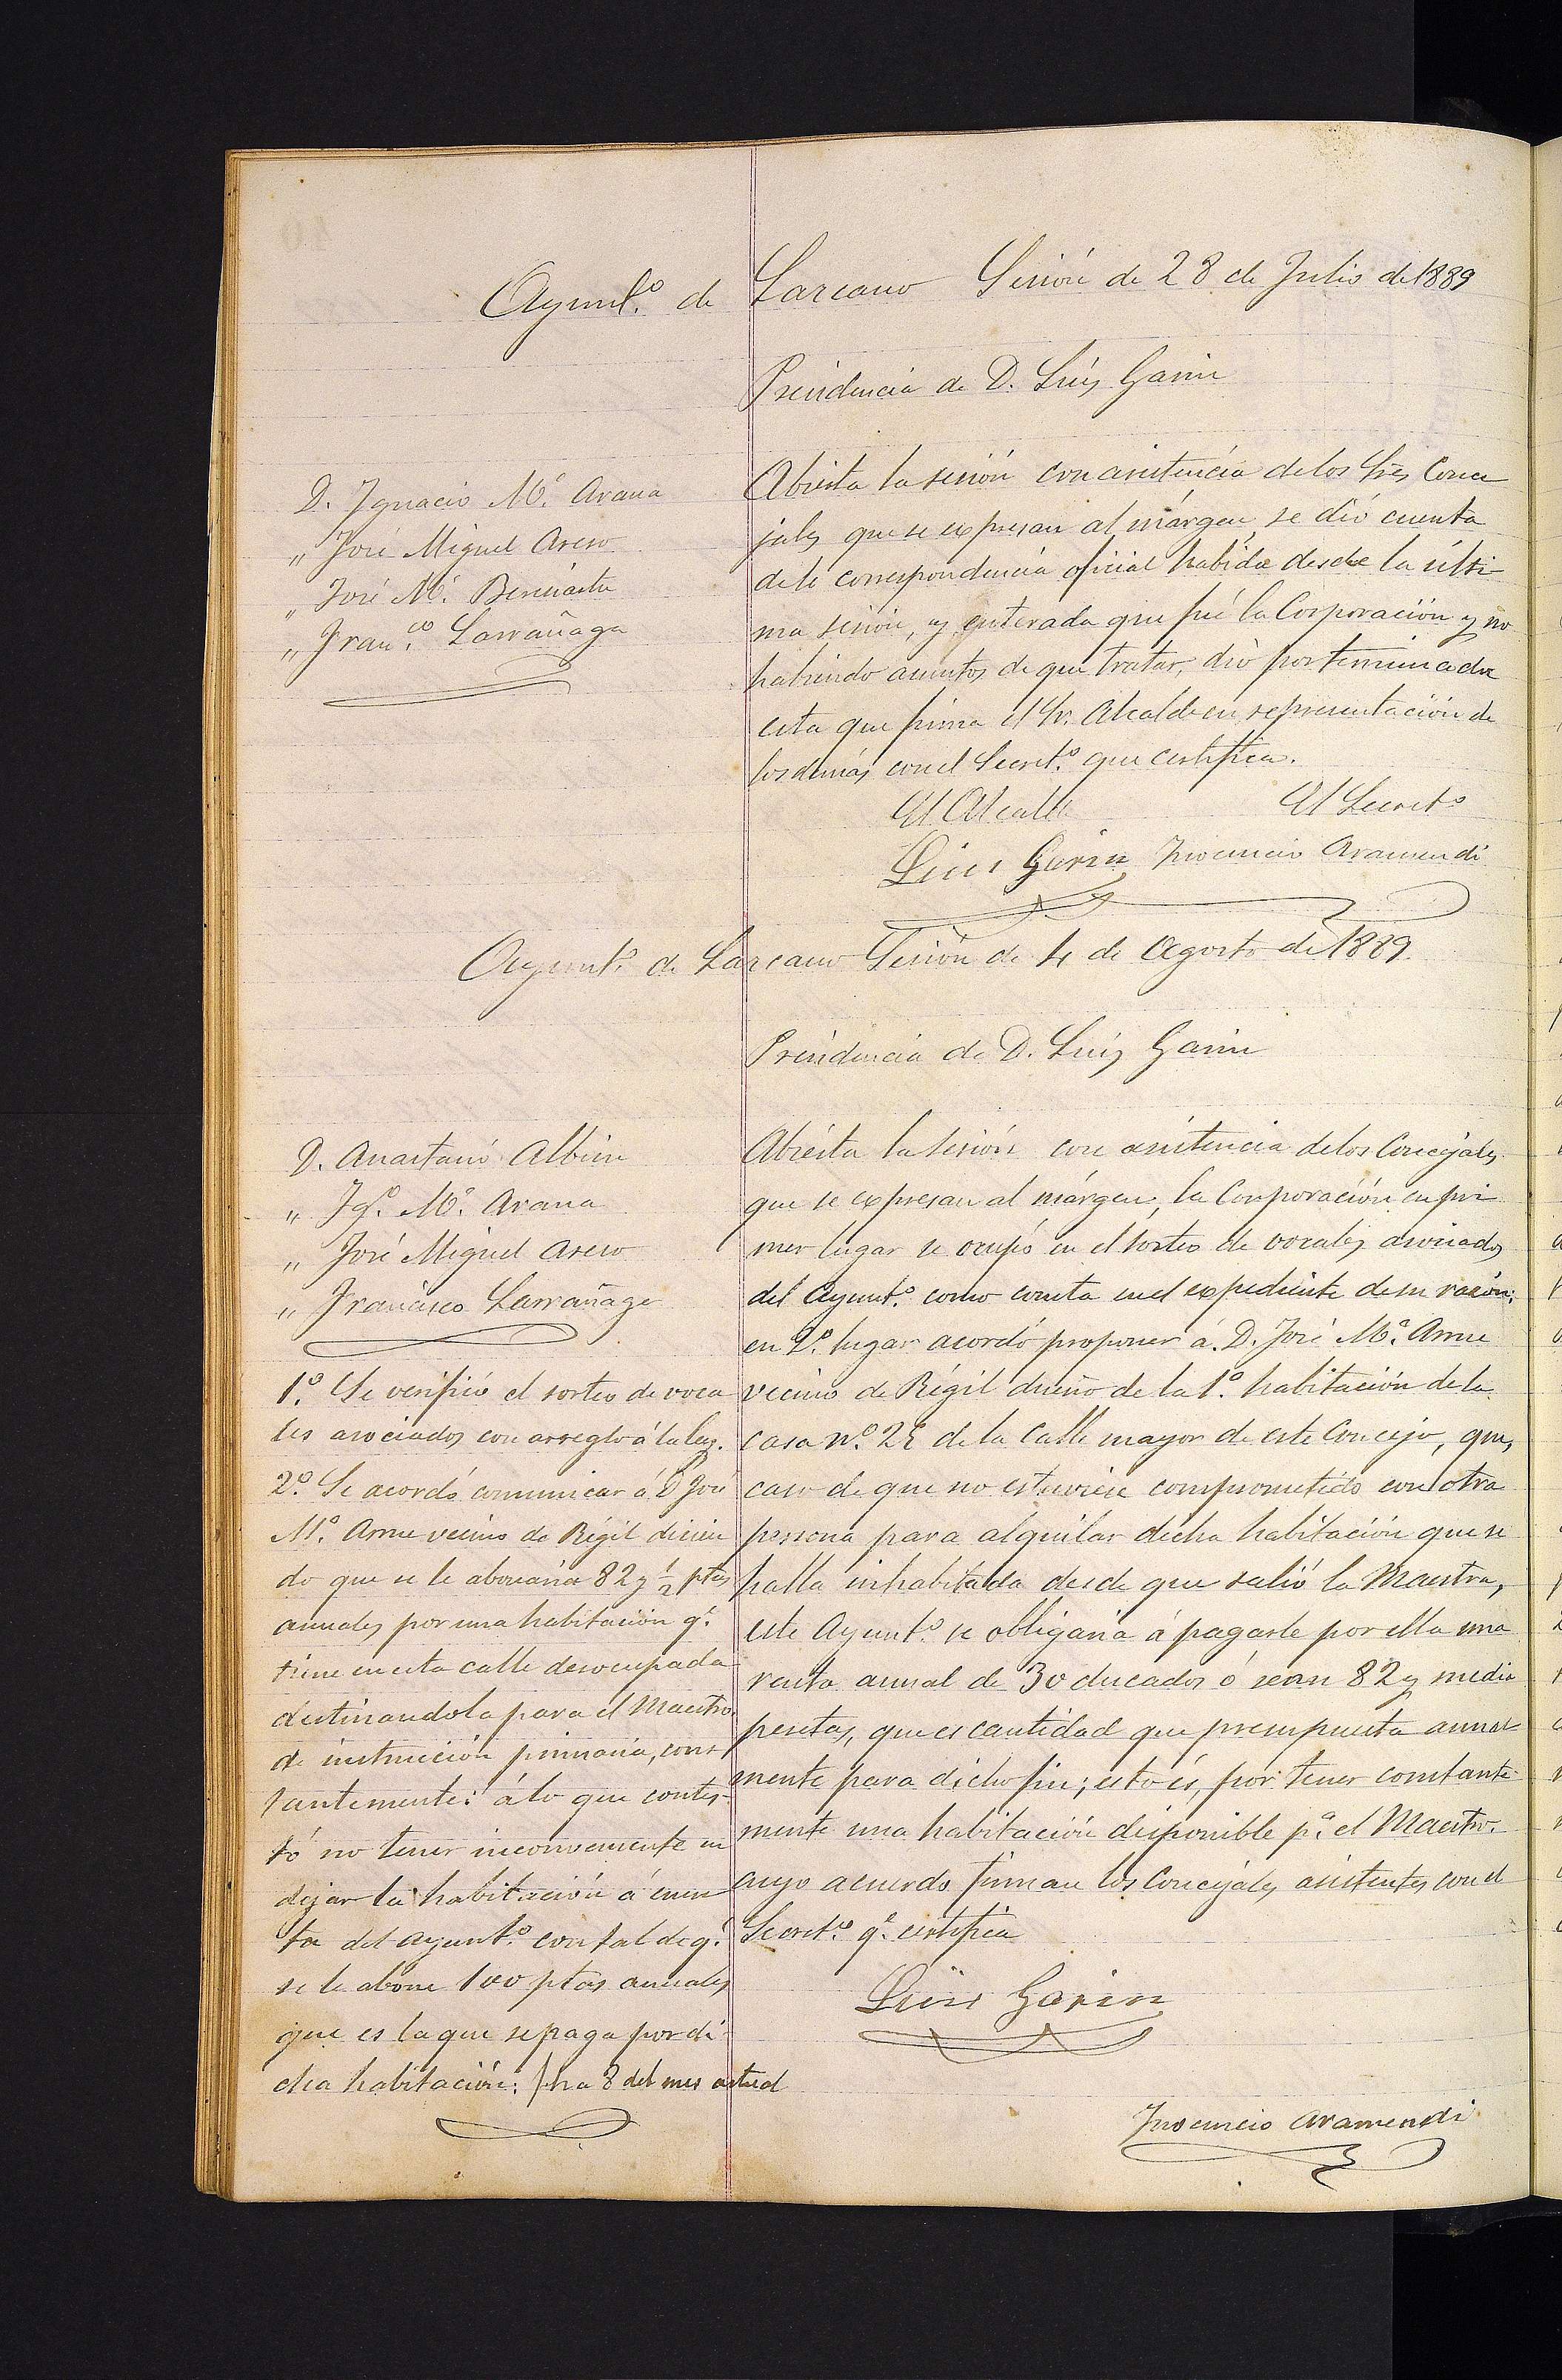 Ayunt.º de Lazcano Sesión de 28 de Julio de 1889
Presidencia de D. Luis Garin
D. Ignacio M.ª Arana
„ José Miguel Areso
„ José M.ª
„ Fran.co Larrañaga
Abierta la sesión con asistencia de los Sres Conce
jales que se expresan al márgen, se dió cuenta
de la correspondencia oficial habida desde la últi-
ma sesión, y enterada que fué la Corporación y no
habiendo asuntos de que tratar, dió por terminada
esta que firma el Sr. Alcalde en representación de
los demás con el Secret.º que certifica.
El Alcalde El Secretº
Luis Garin Inocencio Aramendi
Ayunt.º de Lazcano Sesión de 4 de Agosto de 1889.
Presidencia de D. Luis Garin
D. Anastasio Albisu
„ Ig.º M.ª Arana
„ José Miguel Areso
„ Francisco Larrañaga
1.º Se verificó el sorteo de voca
les asociados con arreglo á la ley.
2.º Se acordó comunicar á D José
M.ª Arrue vecino de Régil dicien
do que se le abonaria 82 y ½ ptas
anuales por una habitación q.e
tiene en esta calle desocupada
destinandola para el Maestro
de instrucción primaria, cons
tantemente: á lo que contes-
tó no tener inconveniente en
dejar la habitación á cuen
ta del ayunt.º con tal de q.e
se le abone 100 ptas anuales
que es la que se paga por di-
cha habitación: fha 8 del mes actual
Abierta la sesión con asistencia de los Concejales
que se expresan al márgen, la Corporación en pri
mer lugar se ocupó en el sorteo de vocales asociados
del Ayunt.º como consta en el expediente de su razón:
en 2.º lugar acordó proponer á D. José M.ª Arrue
vecino de Régil dueño de la 1.ª habitación de la
casa n.º de la Calle mayor de este Concejo, que,
caso de que no estuviese comprometido con otra
persona para alquilar dicha habitación que se
halla inhabitada desde que salió la Maestra,
este Ayunt.º se obligaria á pagarle por ella una
renta anual de 30 ducados ó sean 82 y media
pesetas, que es cantidad que presupuesta anual
mente para dicho fin; esto és, por tener constante-
mente una habitación disponible p.a el Maestro.
cuyo acuerdo firman los Concejales asistentes con el
Secret.º q.e certifica
Luis Garin
Inocencio Aramendi